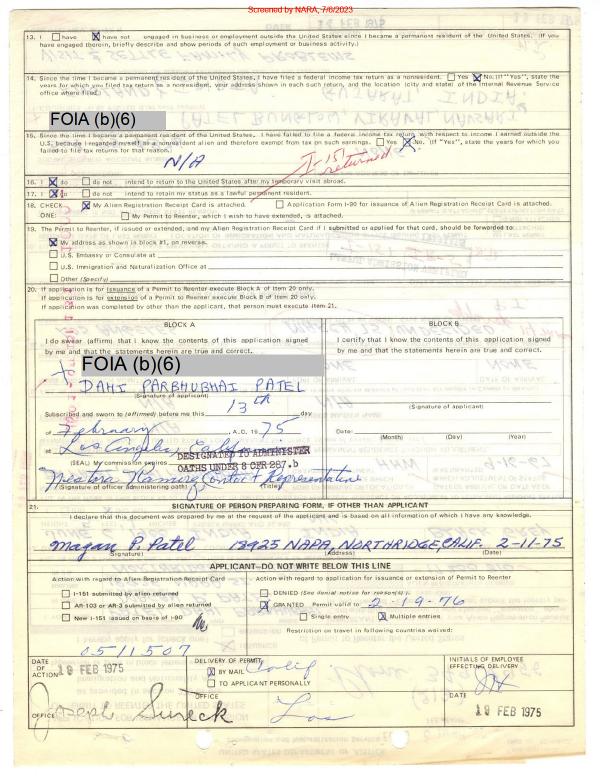 Screened by NARA, 7/6/2023
13. I have X have not engaged in business or employment outside the United States since I became a permanent resident of the United States. (If you
have engaged therein, briefly describe and show periods of such employment or business activity.)
14. Since the time I became a permanent resident of the United States, I have filed a federal income tax return as a nonresident. Yes X No. (If "Yes", state the
years for which you filed tax return as a nonresident, your address shown in each such return, and the location (city and state) of the Internal Revenue Service
office where filed.)
FOIA (b)(6)
15. Since the time I became a permanent resident of the United States, I have failed to file a federal income tax return with respect to income I earned outside the
U.S. because I regarded myself as a nonresident alien and therefore exempt from tax on such earnings. Yes X No. (If "Yes", state the years for which you
failed to file tax returns for that reason.)
N/A
I-151 returned
16. I X do do not intend to return to the United States after my temporary visit abroad.
17. I X do do not intend to retain my status as a lawful permanent resident.
18. CHECK X My Alien Registration Receipt Card is attached. Application Form I-90 for issuance of Alien Registration Receipt Card is attached.
ONE: My Permit to Reenter, which I wish to have extended, is attached.
19. The Permit to Reenter, if issued or extended, and my Alien Registration Receipt Card if I submitted or applied for that card, should be forwarded to:
X My address as shown in block #1, on reverse.
U.S. Embassy or Consulate at
U.S. Immigration and Naturalization Office at
Other (Specify)
20. If application is for issuance of a Permit to Reenter execute Block A of Item 20 only.
If application is for extension of a Permit to Reenter execute Block B of Item 20 only.
If application was completed by other than the applicant, that person must execute item 21.
BLOCK A
I do swear (affirm) that I know the contents of this application signed
by me and that the statements herein are true and correct.
X FOIA (b)(6)
DAHI PARBHUBHAI PATEL
(Signature of applicant)
Subscribed and sworn to (affirmed) before me this 13th day
of February A.D. 1975
at Los Angeles, California
(SEAL) My commission expires DESIGNATED TO ADMINISTER
OATHS UNDER 8 CFR 287.b
Ramirez Contact Representative
(Signature of officer administering oath) (Title)
BLOCK B
I certify that I know the contents of this application signed
by me and that the statements herein are true and correct.
(Signature of applicant)
Date:
(Month) (Day) (Year)
21. SIGNATURE OF PERSON PREPARING FORM, IF OTHER THAN APPLICANT
I declare that this document was prepared by me at the request of the applicant and is based on all information of which I have any knowledge.
Magan P. Patel 18925 NAPA, NORTHRIDGE, CALIF. 2-11-75
(Signature) (Address) (Date)
APPLICANT—DO NOT WRITE BELOW THIS LINE
Action with regard to Alien Registration Receipt Card
I-151 submitted by alien returned
AR-103 or AR-3 submitted by alien returned
New I-151 issued on basis of I-90
05 11 507
Action with regard to application for issuance or extension of Permit to Reenter
DENIED (See denial notice for reason(s).)
X GRANTED Permit valid to: 2-19-76
Single entry X Multiple entries
Restriction on travel in following countries waived:
DATE
OF
ACTION 19 FEB 1975
OFFICE Joseph Sureck
DELIVERY OF PERMIT
X BY MAIL Calif
TO APPLICANT PERSONALLY
OFFICE Los
INITIALS OF EMPLOYEE
EFFECTING DELIVERY
DATE
19 FEB 1975